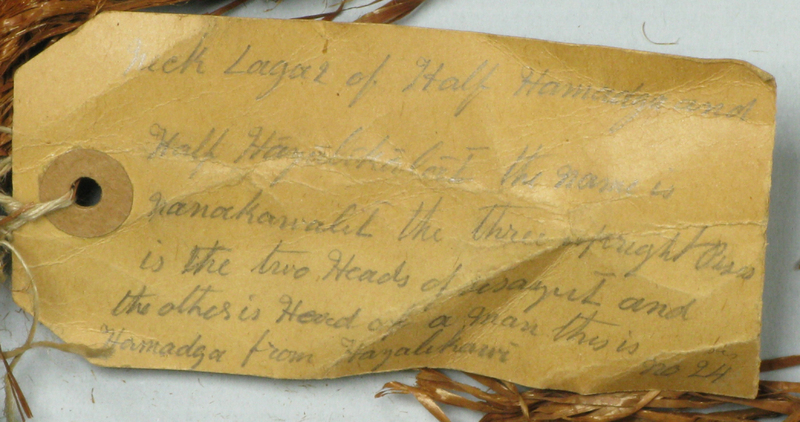 neck Lagaz of Half Hamadza and
Half the name is
nanakawalit the three upright
is the two Heads of and
the other is Head of a man this is
Hamadza from Hazalikawi
no 24